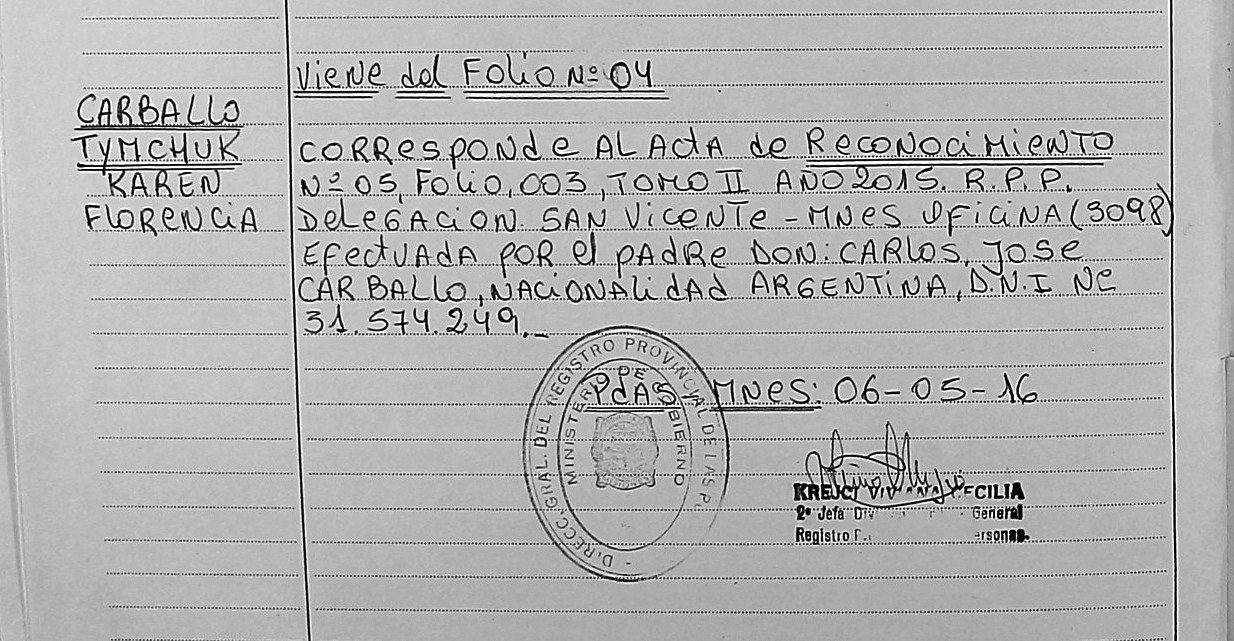 Viene del Folio Nº 04
CARBALLO
TYMCHUK
KAREN
FLORENCIA
CORResponde AL ActA de ReCONOCiMieNTO
Nº 05, Folio, 003, TOMO II AÑO 2015. R.P.P.
DeleGACION SAN Vicente - MNES OficiNA (3098)
EfectUADA POR el PADRe DON: CARLOS, JOSE
CARBALLO, NACIONALidAd ARGENTINA, D.N.I Nº
31.574.249._
PdAS MNes: 06-05-16
DIRECC. GRAL. DEL REGISTRO PROVINCIAL DE LAS P.
MINISTERIO DE GOBIERNO
KREJCI VIVIANA CECILIA
2ª Jefa Div General
Registro P. ersonas.